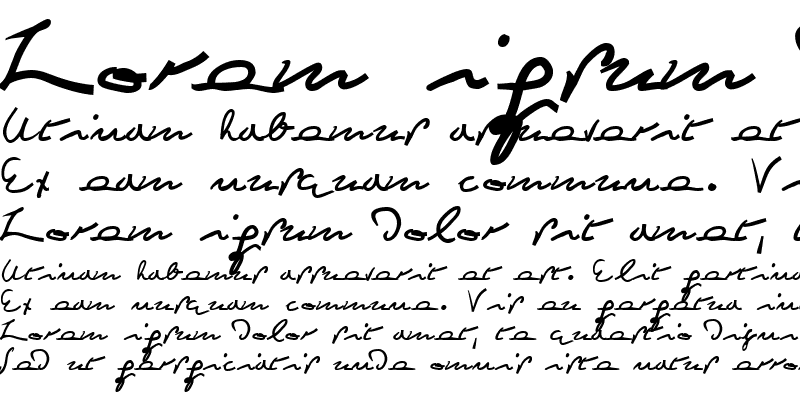 Lorem ipsum
Utinam habemus assueverit et
Ex eam nusquam commune. Vi
Lorem ipsum dolor sit amet,
Utinam habemus assueverit et est. Elit pertina
Ex eam nusquam commune. Vis eu perpetua
Lorem ipsum dolor sit amet, te quaestio
Sed ut perspiciatis unde omnis iste natus erro